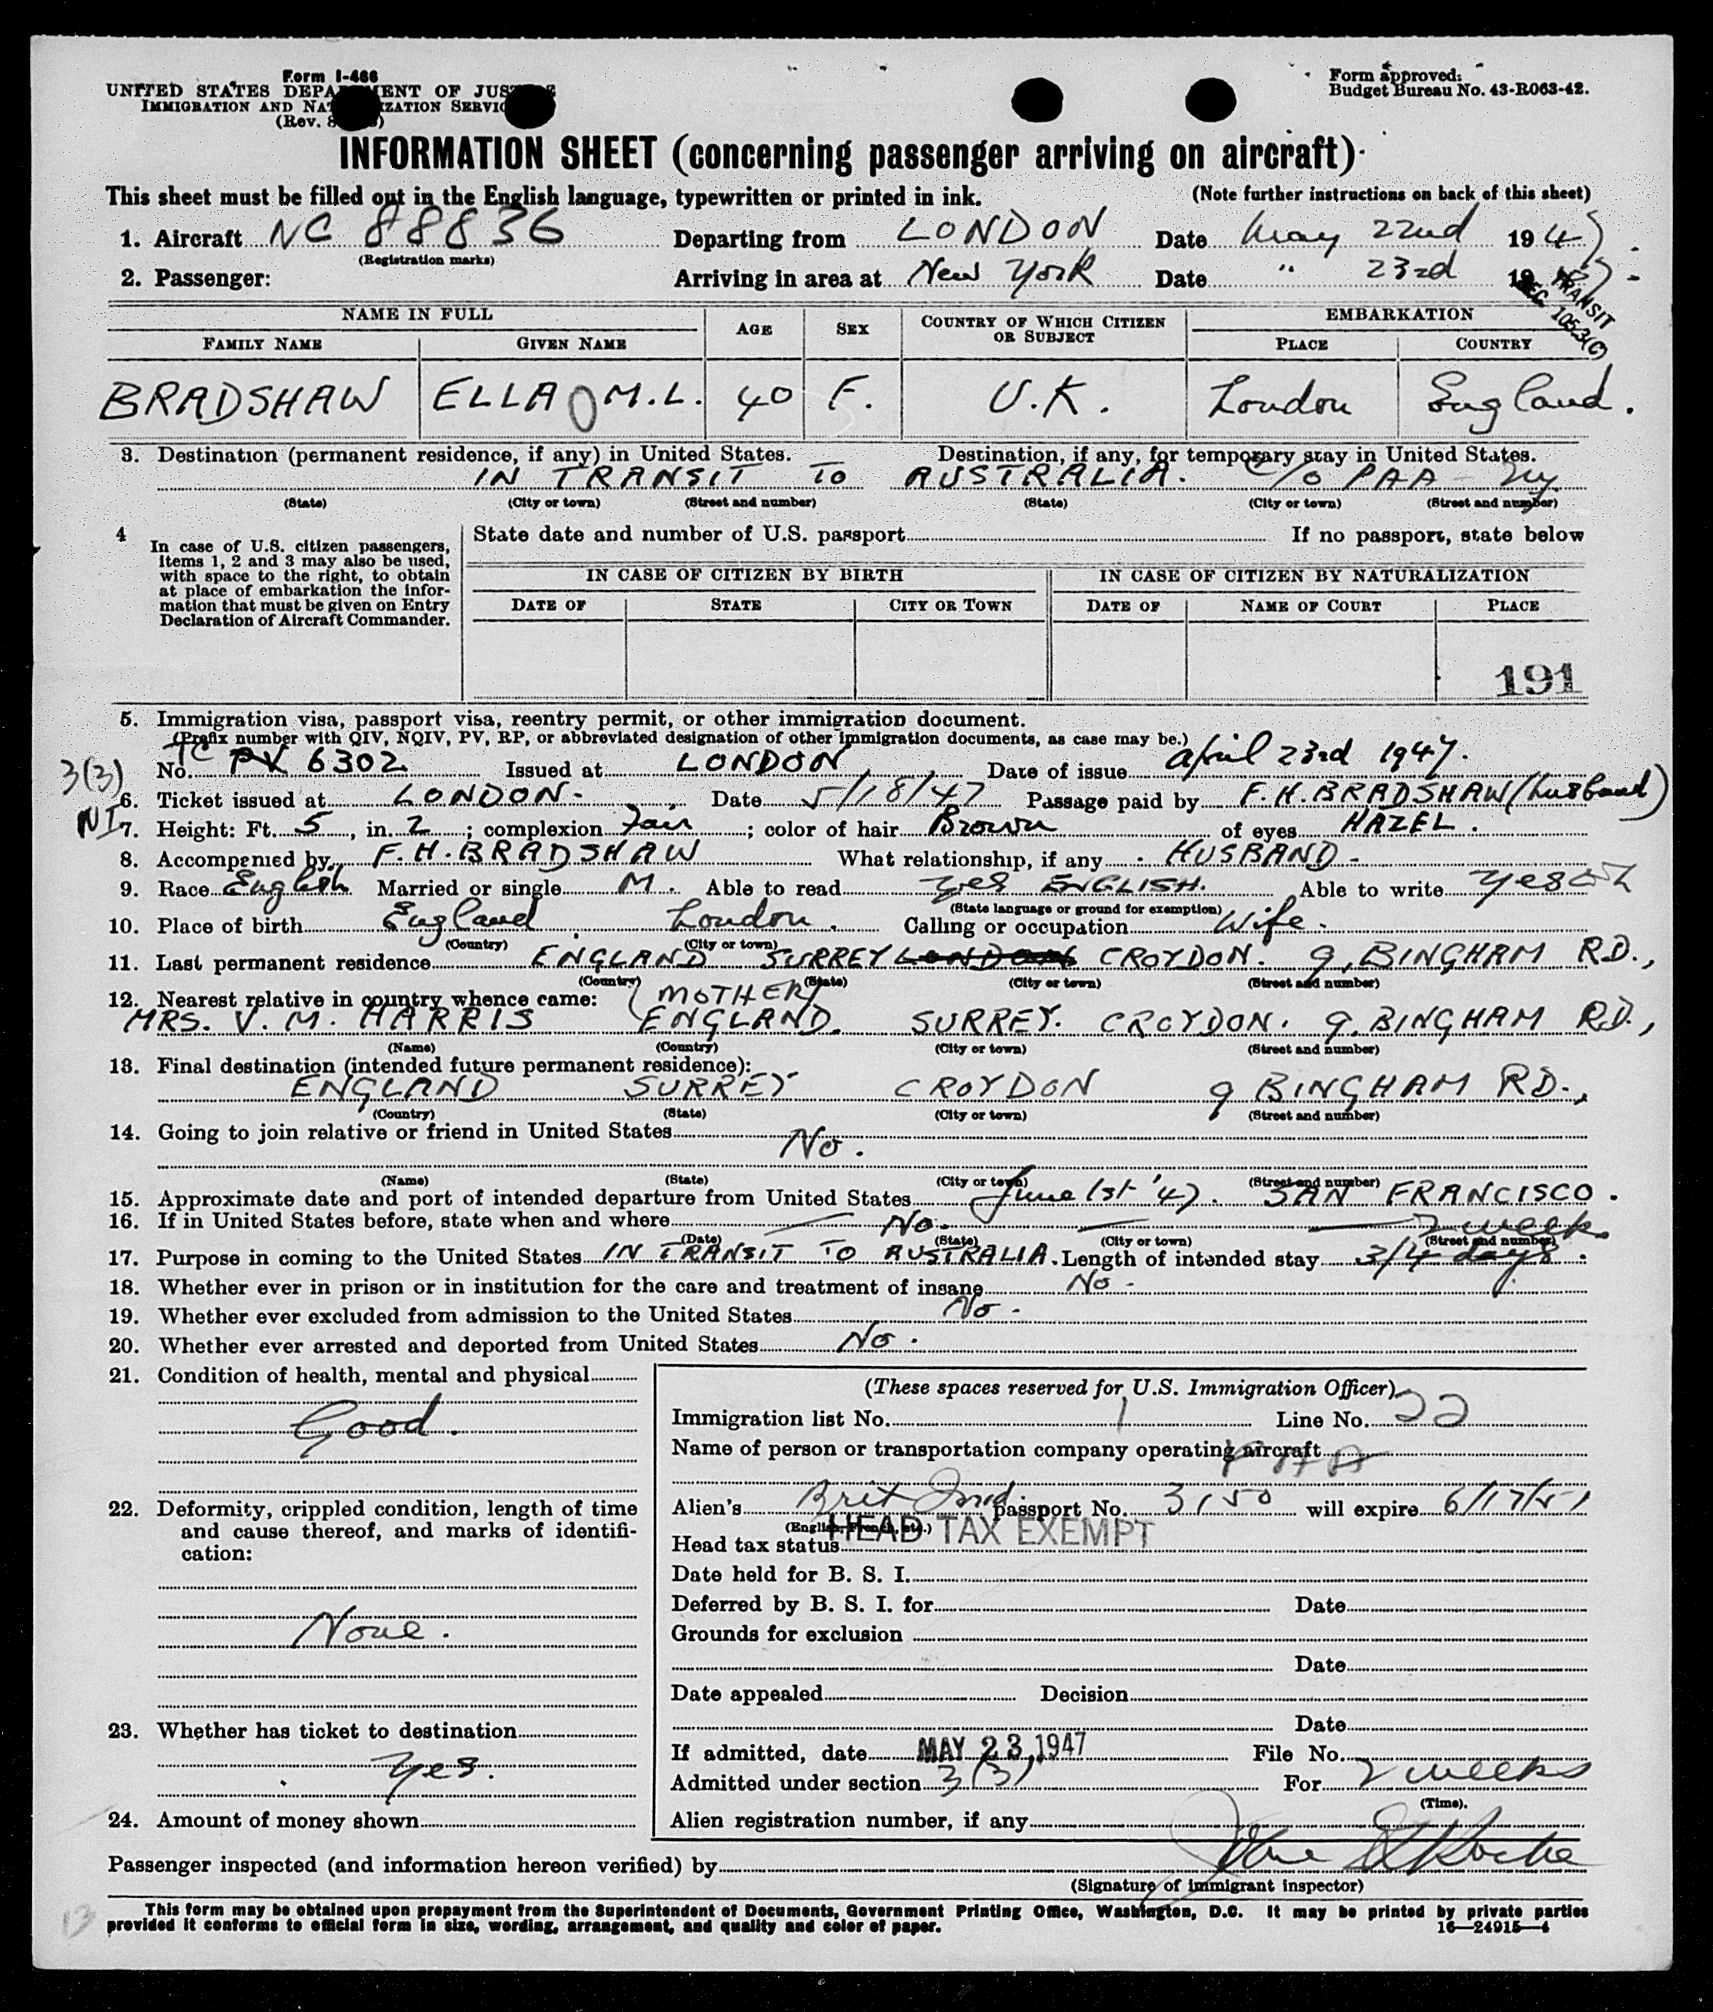 Form I-466
UNITED STATES DEPARTMENT OF JUSTICE
IMMIGRATION AND NATURALIZATION SERVICE
(Rev. 8
Form approved:
Budget Bureau No. 43-R063-42.
INFORMATION SHEET (concerning passenger arriving on aircraft)
This sheet must be filled out in the English language, typewritten or printed in ink. (Note further instructions on back of this sheet)
1. Aircraft NC 88836 Departing from LONDON Date May 22nd 1947.
(Registration marks)
2. Passenger: Arriving in area at New York Date " 23rd 19
TRANSIT
SEC. 1053(C)
NAME IN FULL AGE SEX COUNTRY OF WHICH CITIZEN OR SUBJECT EMBARKATION
FAMILY NAME GIVEN NAME PLACE COUNTRY
BRADSHAW ELLA M.L. 40 F. U.K. London England.
3. Destination (permanent residence, if any) in United States. Destination, if any, for temporary stay in United States.
IN TRANSIT TO AUSTRALIA. C/O PAA - NY
(State) (City or town) (Street and number) (State) (City or town) (Street and number)
4 In case of U.S. citizen passengers, items 1, 2 and 3 may also be used, with space to the right, to obtain at place of embarkation the information that must be given on Entry Declaration of Aircraft Commander.
State date and number of U.S. passport If no passport, state below
IN CASE OF CITIZEN BY BIRTH IN CASE OF CITIZEN BY NATURALIZATION
DATE OF STATE CITY OR TOWN DATE OF NAME OF COURT PLACE
191
5. Immigration visa, passport visa, reentry permit, or other immigration document.
(Prefix number with QIV, NQIV, PV, RP, or abbreviated designation of other immigration documents, as case may be.)
3(3)
NI
No. TC PV 6302 Issued at LONDON Date of issue April 23rd 1947.
6. Ticket issued at LONDON- Date 5/18/47 Passage paid by F.H. BRADSHAW (husband)
7. Height: Ft. 5, in. 2; complexion Fair; color of hair Brown of eyes HAZEL.
8. Accompanied by F.H. BRADSHAW What relationship, if any - HUSBAND -
9. Race English Married or single M. Able to read yes ENGLISH. Able to write yes
(State language or ground for exemption)
10. Place of birth England London. Calling or occupation Wife.
(Country) (City or town)
11. Last permanent residence ENGLAND SURREY LONDON CROYDON. 9, BINGHAM RD.,
(Country) (State) (City or town) (Street and number)
12. Nearest relative in country whence came: (MOTHER)
MRS. V. M. HARRIS ENGLAND. SURREY. CROYDON. 9. BINGHAM RD.,
(Name) (Country) (City or town) (Street and number)
13. Final destination (intended future permanent residence):
ENGLAND SURREY CROYDON 9 BINGHAM RD.,
(Country) (State) (City or town) (Street and number)
14. Going to join relative or friend in United States
No.
(Name) (State) (City or town) (Street and number)
15. Approximate date and port of intended departure from United States June 1st '47. SAN FRANCISCO.
16. If in United States before, state when and where No.
(Date) (State) (City or town) (Street and number)
2 weeks
17. Purpose in coming to the United States IN TRANSIT TO AUSTRALIA. Length of intended stay 3/4 days.
18. Whether ever in prison or in institution for the care and treatment of insane No -
19. Whether ever excluded from admission to the United States No -
20. Whether ever arrested and deported from United States No.
21. Condition of health, mental and physical
Good.
22. Deformity, crippled condition, length of time and cause thereof, and marks of identification:
None.
23. Whether has ticket to destination
Yes.
24. Amount of money shown
(These spaces reserved for U.S. Immigration Officer)
Immigration list No. 1 Line No. 22
Name of person or transportation company operating aircraft
Alien's Brit Ind. passport No. 3150 will expire 6/17/51
(English, French, etc.)
Head tax status HEAD TAX EXEMPT
Date held for B. S. I.
Deferred by B. S. I. for Date
Grounds for exclusion
Date
Date appealed Decision
Date
If admitted, date MAY 23 1947 File No.
Admitted under section 3(3) For 2 weeks
(Time).
Alien registration number, if any
Passenger inspected (and information hereon verified) by
(Signature of immigrant inspector)
This form may be obtained upon prepayment from the Superintendent of Documents, Government Printing Office, Washington, D.C. It may be printed by private parties
provided it conforms to official form in size, wording, arrangement, and quality and color of paper. 16—24915—4
13